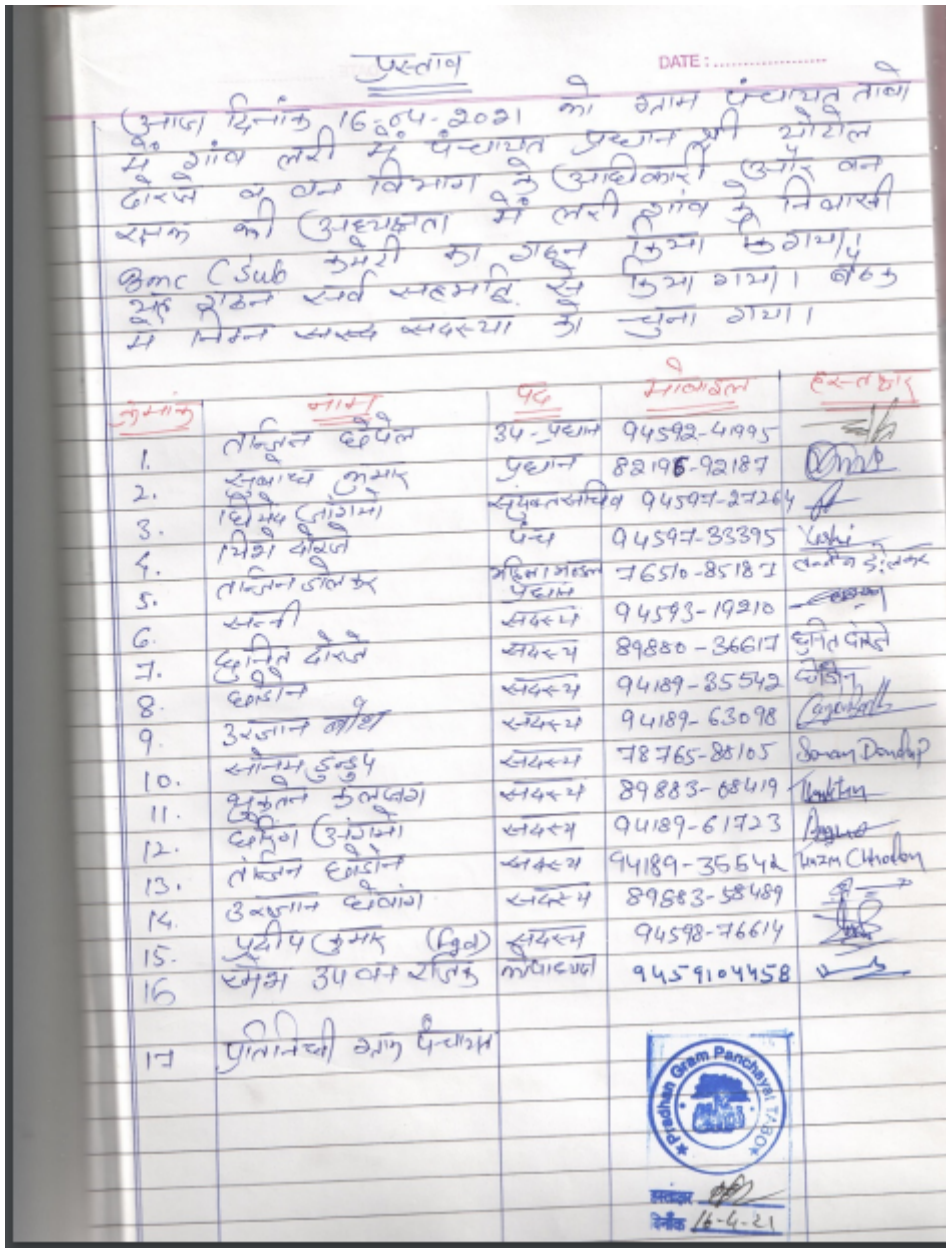 प्रस्ताव
DATE : ....................
आज दिनांक 16-04-2021 को ग्राम पंचायत ताबो
में गांव लरी में पंचायत प्रधान श्री
दोरजे व वन विभाग के अधिकारी और वन
रक्षक की अध्यक्षता में लरी गांव के निवासी
Bmc (Sub कमेटी का गठन किया गया।
यह गठन सर्व सहमति से किया गया। बैठक
में निम्न सदस्या को चुना गया।
क्रमांक नाम पद मोबाइल हस्ताक्षर
1. तान्जिन छेपेल उप-प्रधान 94592-41995
2. सुबाष कुमार प्रधान 82196-92187
3. संयुक्त सचिव 94597-27264
4. दोरजे पंच 94597-33395 Yeshi
5. तान्जिन डोलकर महिला मण्डल प्रधान 76510-85187
6. सन्नी सदस्य 94593-19210
7. छुनित दोरजे सदस्य 89880-36617 छुनित दोरजे
8. छोडोन सदस्य 94189-35542 छोडोन
9. उरज्ञान सदस्य 94189-63098
10. सोनम डुन्डुप सदस्य 78765-88105 Sonam Dandup
11. थुकतेन कलजंग सदस्य 89883-68419 Thuktan
12. छेरिंग आंगमो सदस्य 94189-61723
13. तंजिन छोडोन सदस्य 94189-35542 Tanzin Chhodon
14. उरज्ञान छेवांग सदस्य 89883-58489
15. प्रदीप कुमार (Fgd) सदस्य 94598-76614
16 उप वन रजिक 9459104458
17 प्रतिनिधी ग्राम पंचायत
Pradhan Gram Panchayat TABO
हस्ताक्षर
दिनाँक 16-4-21